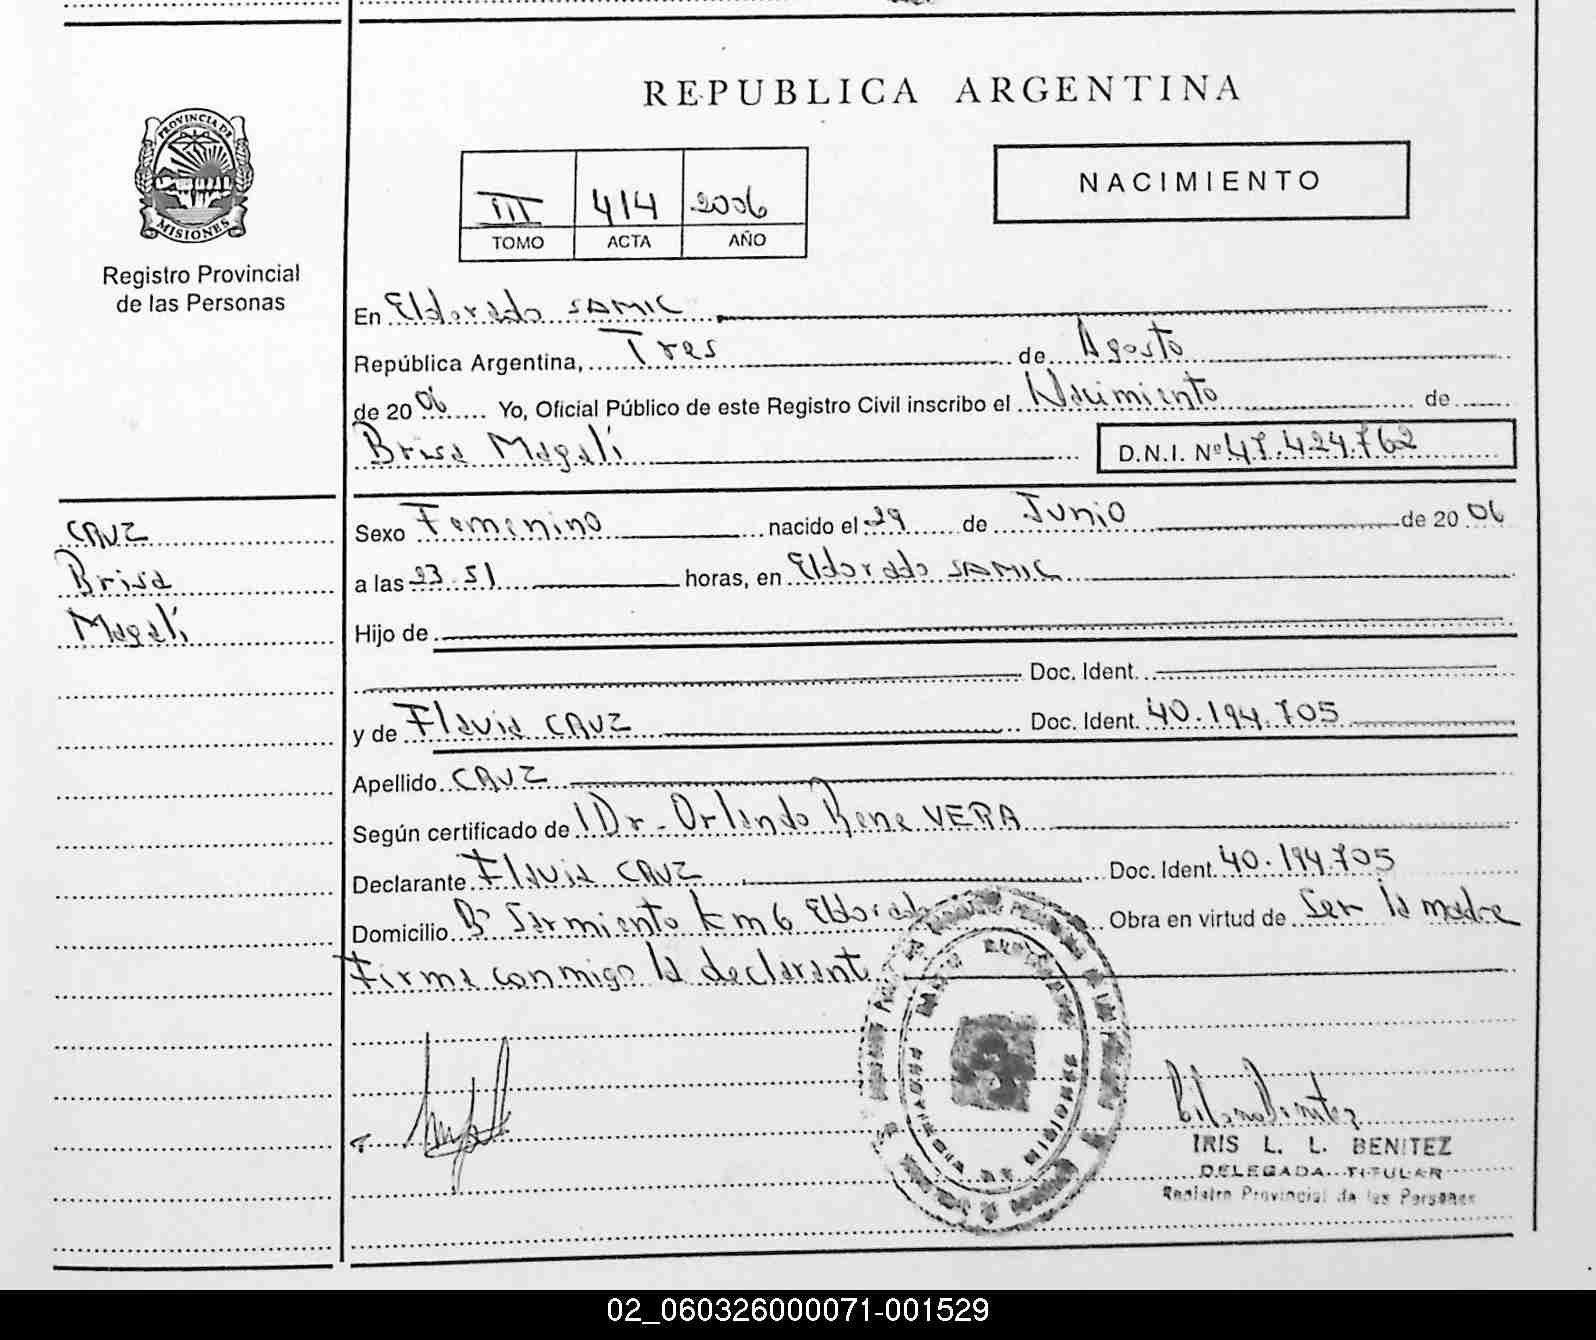 REPUBLICA ARGENTINA
PROVINCIA DE
MISIONES
Registro Provincial
de las Personas
III 414 2006
TOMO ACTA AÑO
NACIMIENTO
En Eldorado SAMIC
República Argentina, Tres de Agosto
de 2006 Yo, Oficial Público de este Registro Civil inscribo el Nacimiento de
Brisa Magalí D.N.I. Nº 47.424.762
CRUZ
Brisa
Magalí
Sexo Femenino nacido el 29 de Junio de 2006
a las 23.51 horas, en Eldorado SAMIC
Hijo de
Doc. Ident.
y de Flavia CRUZ Doc. Ident. 40.194.705
Apellido CRUZ
Según certificado de Dr. Orlando Rene VERA
Declarante Flavia CRUZ Doc. Ident. 40.194.705
Domicilio Bº Sarmiento km 6 Eldorado Obra en virtud de Ser la madre
Firma conmigo la declarante
IRIS L. L. BENITEZ
DELEGADA TITULAR
Registro Provincial de las Personas
02_060326000071-001529